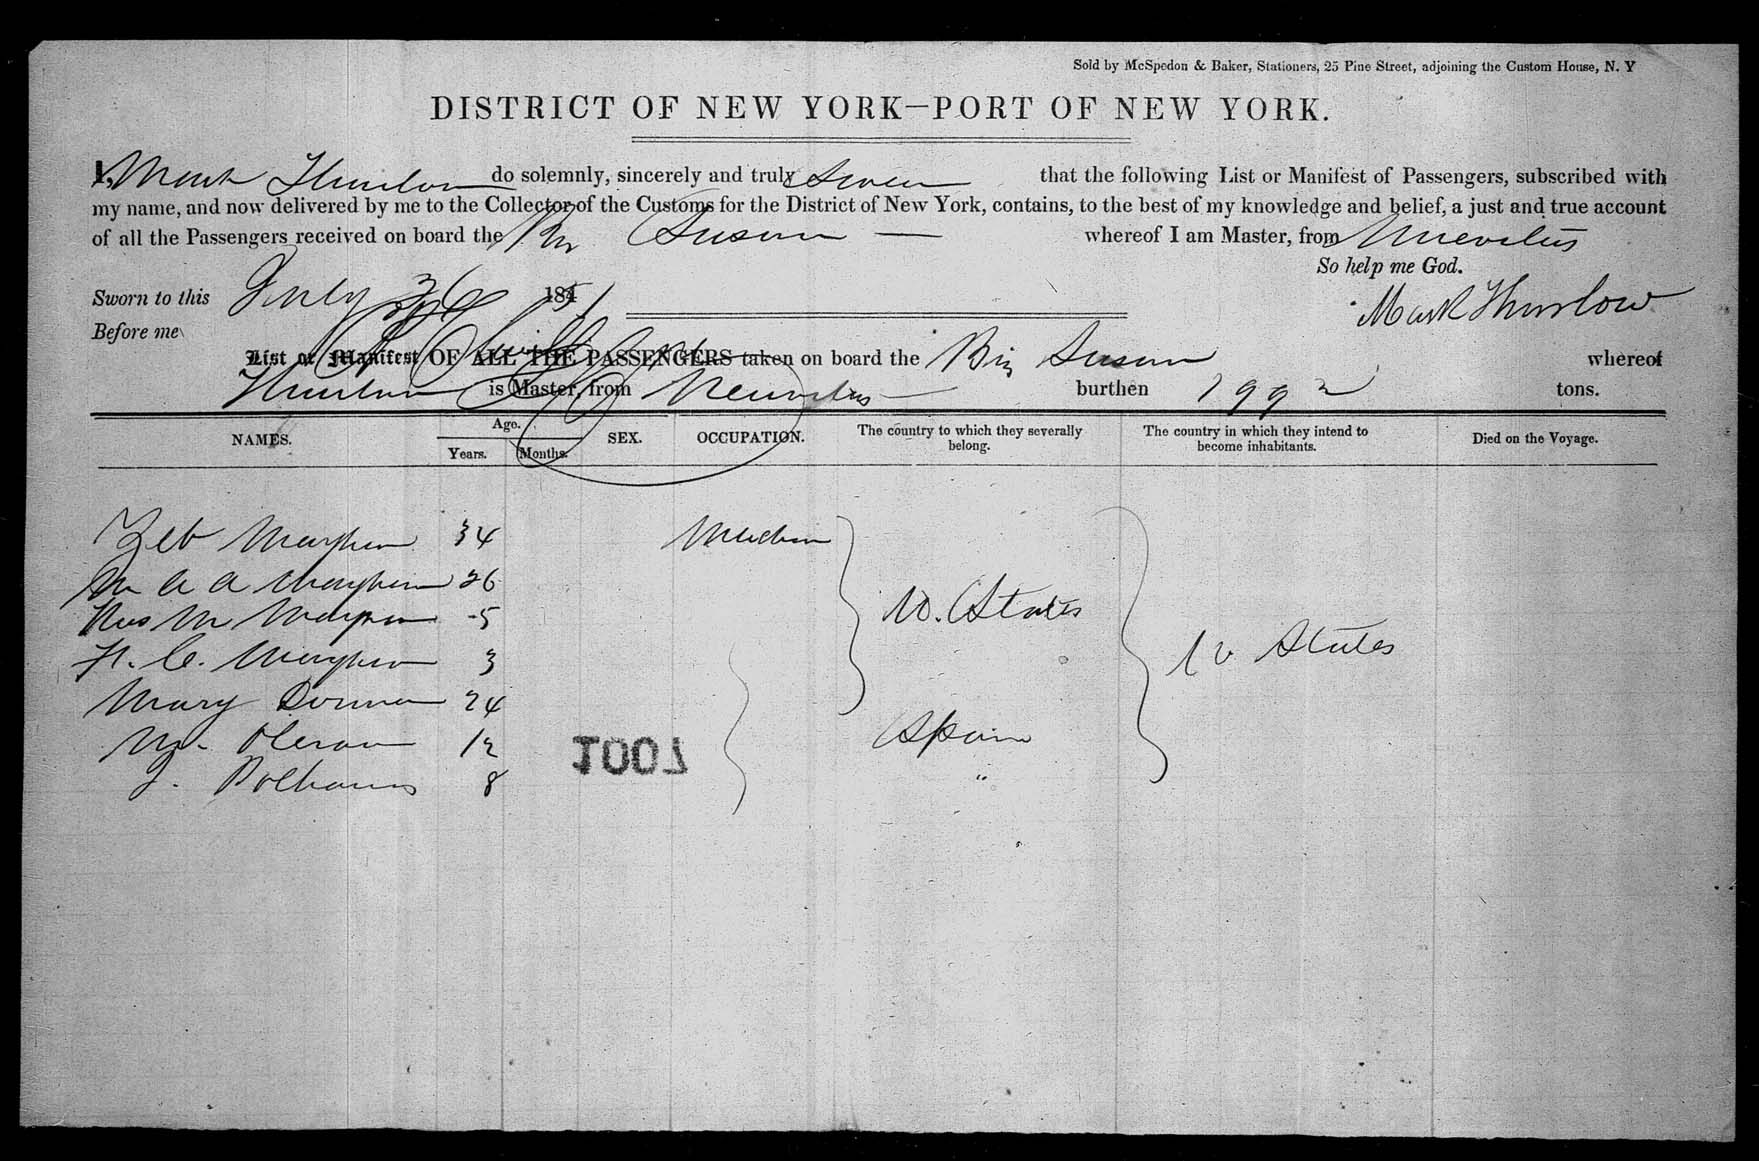 Sold by McSpedon & Baker, Stationers, 25 Pine Street, adjoining the Custom House, N. Y
DISTRICT OF NEW YORK—PORT OF NEW YORK.
I, Mark Thurlow do solemnly, sincerely and truly Swear that the following List or Manifest of Passengers, subscribed with
my name, and now delivered by me to the Collector of the Customs for the District of New York, contains, to the best of my knowledge and belief, a just and true account
of all the Passengers received on board the Brig Susan — whereof I am Master, from Nuevitas
So help me God.
Sworn to this July 26 1851
Mark Thurlow
Before me
List or Manifest OF ALL THE PASSENGERS taken on board the Brig Susan whereof
Thurlow is Master, from Neuvitas burthen 199 tons.
NAMES. Age. Years. Months. SEX. OCCUPATION. The country to which they severally belong. The country in which they intend to become inhabitants. Died on the Voyage.
Zeb 34
M A A 26
M 5
H. C. 3
U. States
U States
Mary 24
M. 12 Spain
J. 8 "
1007